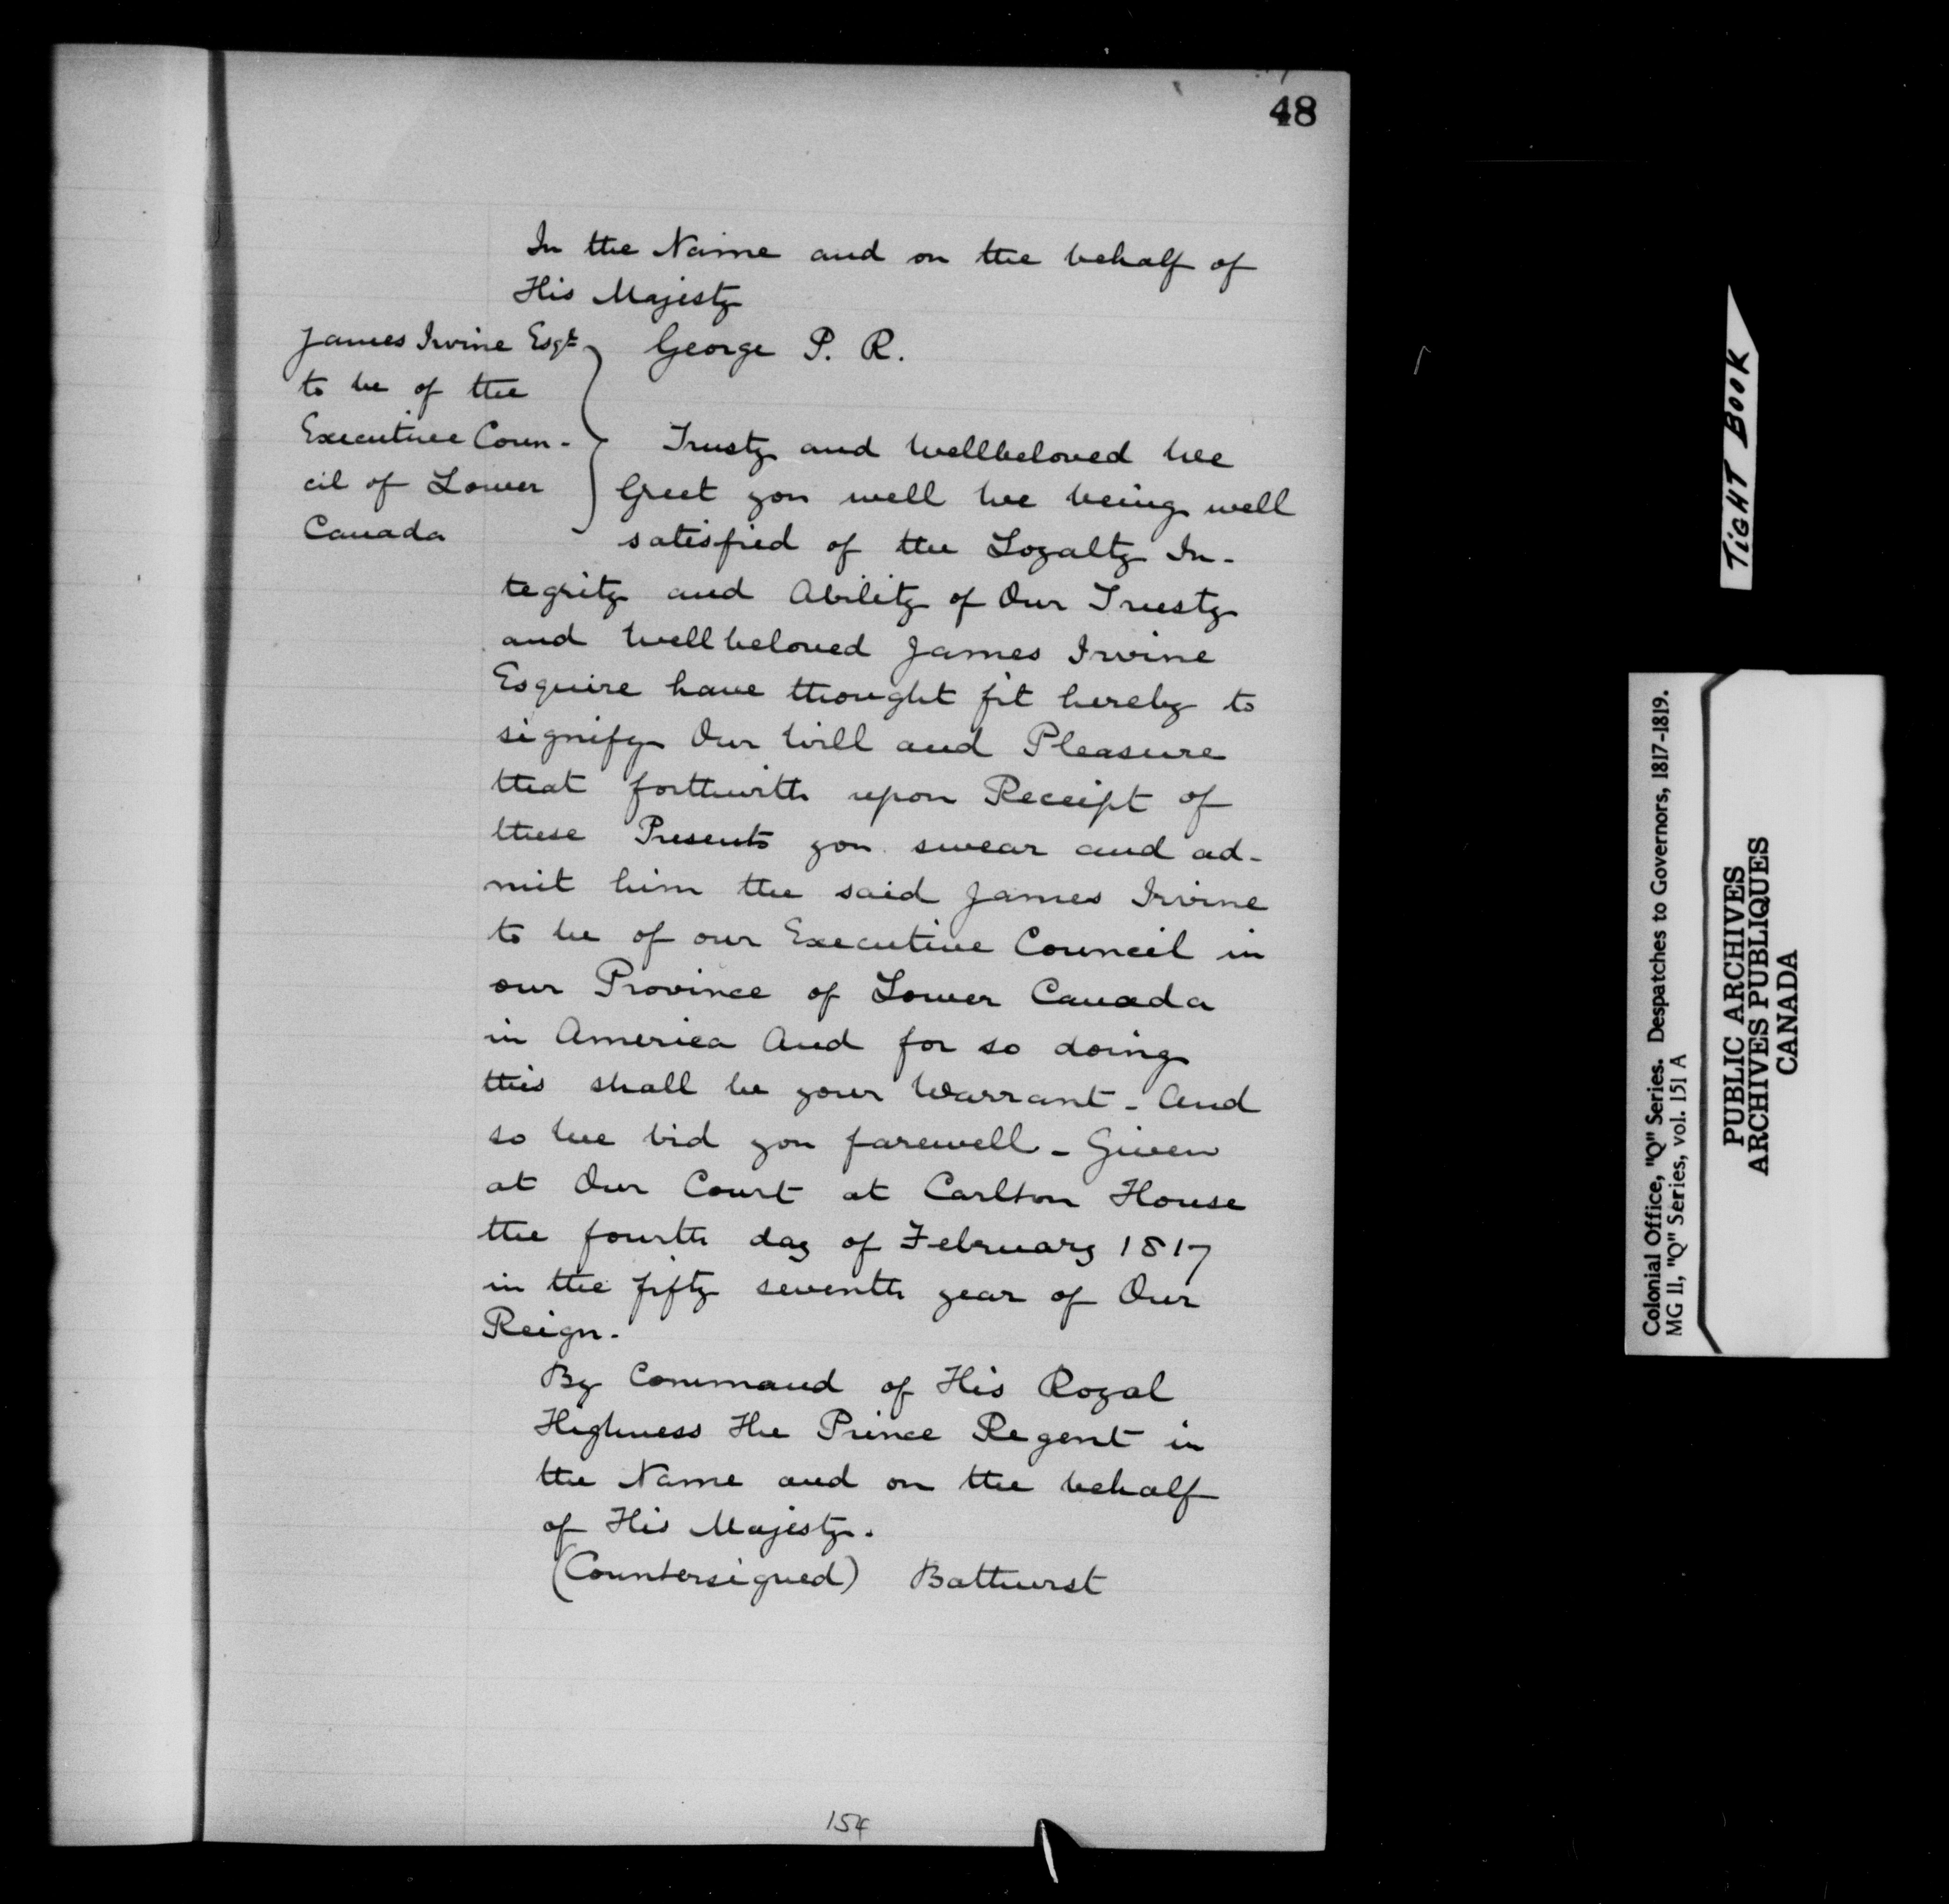 48
In the Name and on the behalf of
His Majesty
James Irvine Esqr
to be of the
Executive Coun-
cil of Lower
Canada
George P. R.
Trusty and Wellbeloved We
Greet you well We being well
satisfied of the Loyalty In-
tegrity and Ability of Our Trusty
and Wellbeloved James Irvine
Esquire have thought fit hereby to
signify Our Will and Pleasure
that forthwith upon Receipt of
these Presents you swear and ad-
mit him the said James Irvine
to be of our Executive Council in
our Province of Lower Canada
in America And for so doing
this shall be your Warrant - And
so We bid you farewell - Given
at Our Court at Carlton House
the fourth day of February 1817
in the fifty seventh year of Our
Reign.
By Command of His Royal
Highness The Prince Regent in
the Name and on the behalf
of His Majesty.
(Countersigned) Bathurst
154
TIGHT BOOK
Colonial Office, "Q" Series. Despatches to Governors, 1817-1819.
MG 11, "Q" Series, vol. 151 A
PUBLIC ARCHIVES
ARCHIVES PUBLIQUES
CANADA